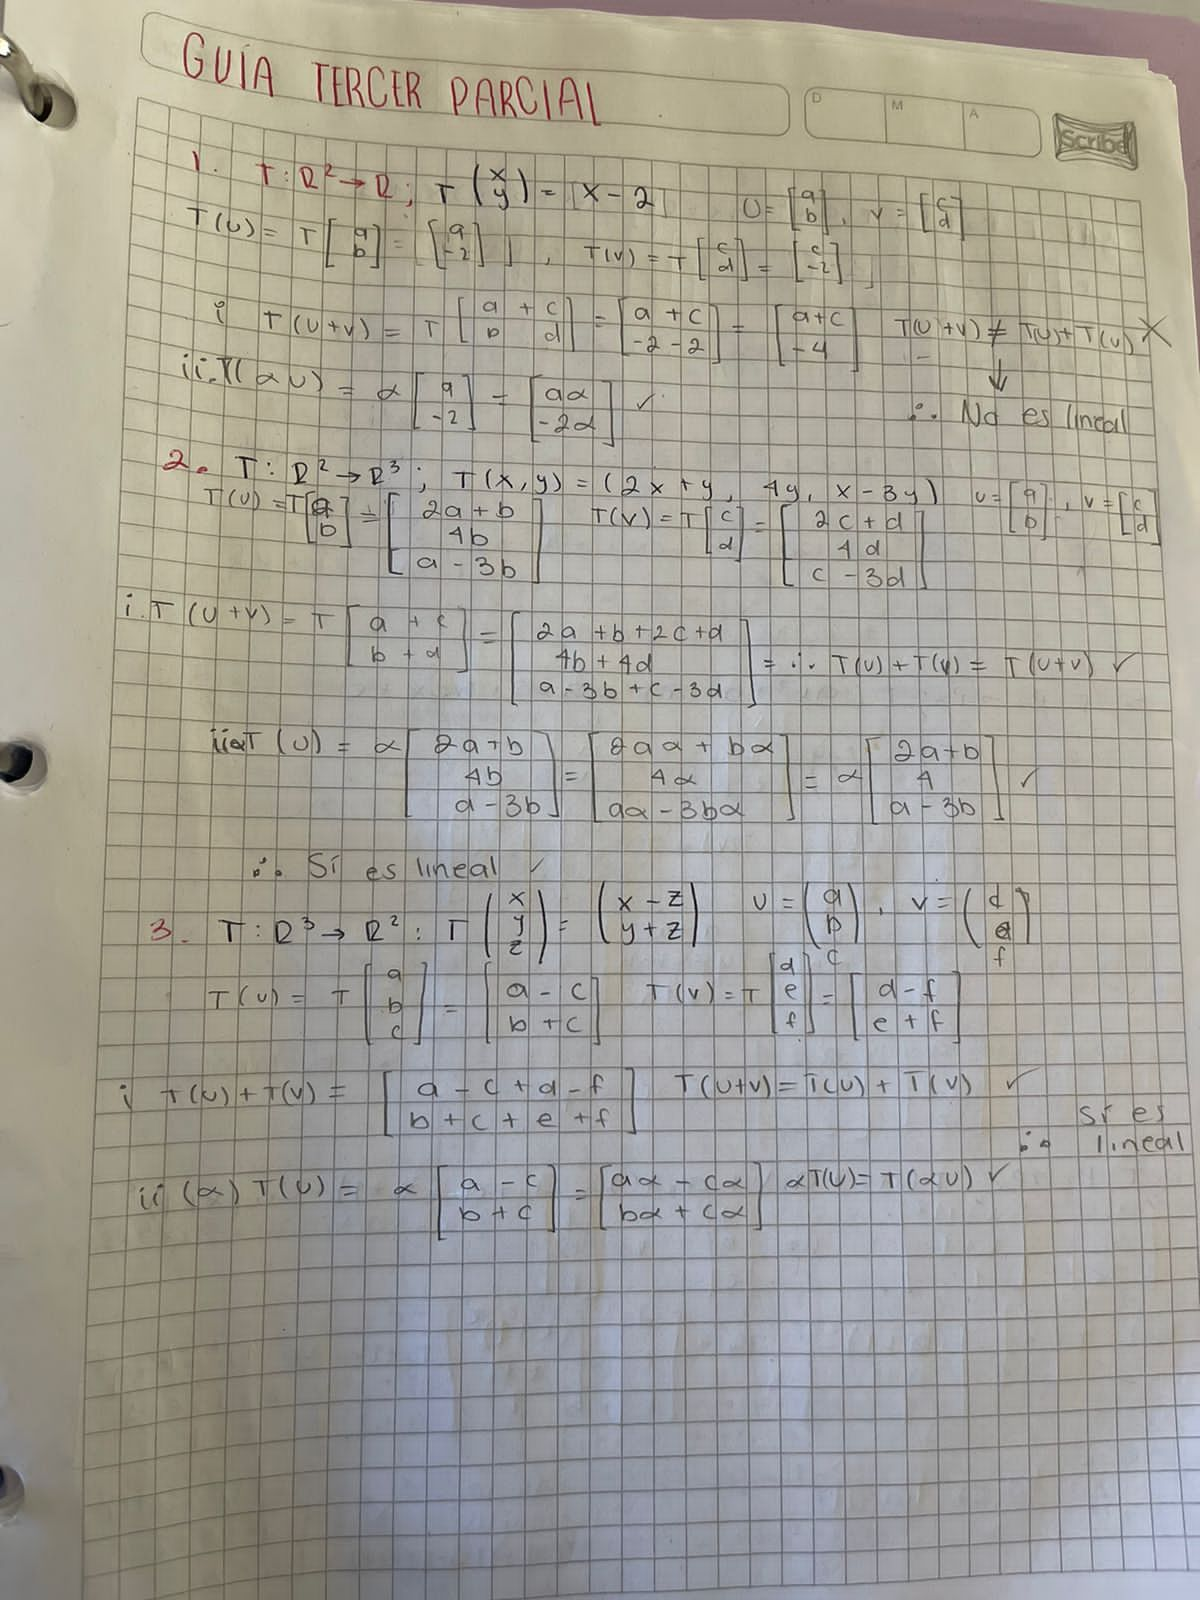 GUÍA TERCER PARCIAL
D M A
Scribe
1. T: R² → R; T (x y) = [x - 2] U = [a b], v = [c d]
T(U) = T [a b] = [a -2], T(v) = T [c d] = [c -2]
i T(U+v) = T [a + c b d] = [a + c -2 - 2] = [a+c -4] T(U+v) ≠ T(U) + T(v) X
↓
ii. T(αU) = α [a -2] = [aα -2α] ✓ ∴ No es lineal
2. T: R² → R³; T(x, y) = (2x + y, 4y, x - 3y) U = [a b], v = [c d]
T(U) = T [a b] = [2a + b 4b a - 3b] T(v) = T [c d] = [2c + d 4d c - 3d]
i. T(U+v) = T [a + c b + d] = [2a + b + 2c + d 4b + 4d a - 3b + c - 3d] = ∴ T(U) + T(v) = T(U+v) ✓
ii αT(U) = α [2a + b 4b a - 3b] = [2aα + bα 4α aα - 3bα] = α [2a + b 4 a - 3b] ✓
∴ Sí es lineal ✓
3. T: R³ → R²: T (x y z) = (x - z y + z) U = (a b c), v = (d e f)
T(U) = T [a b c] = [a - c b + c] T(v) = T [d e f] = [d - f e + f]
i T(U) + T(v) = [a - c + d - f b + c + e + f] T(U+v) = T(U) + T(v) ✓
∴ Sí es lineal
ii (α) T(U) = α [a - c b + c] = [aα - cα bα + cα] αT(U) = T(αU) ✓